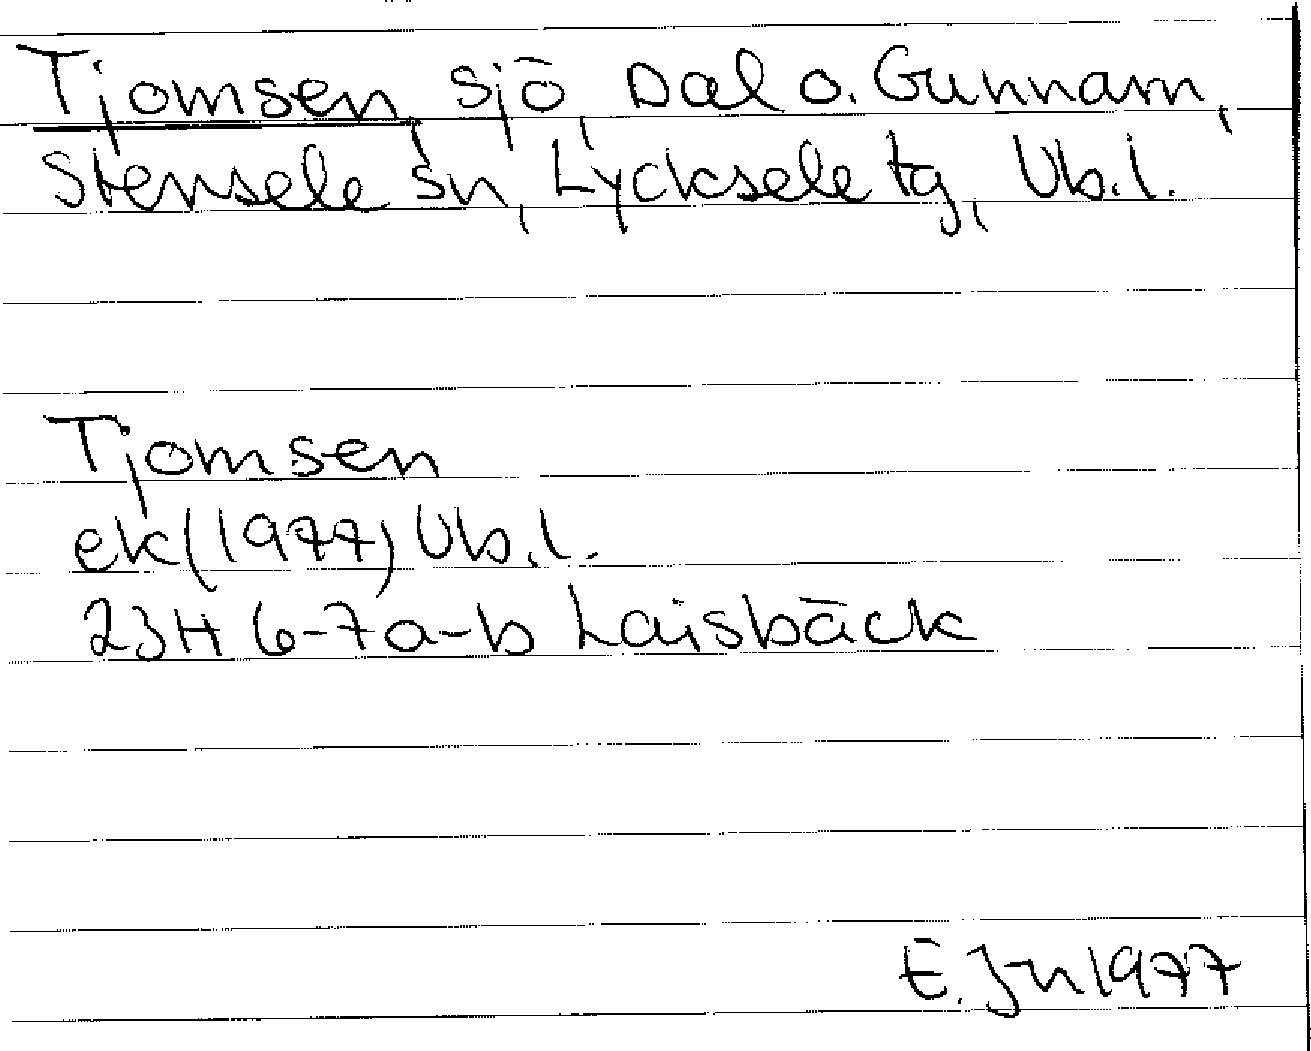 Tjomsen, sjö, Dal o. Gunnarn,
Stensele sn, Lycksele tg, Vb.l.
Tjomsen
ek(1977) Vb.l.
23H 6-7a-b Laisbäck
E.Jn 1977